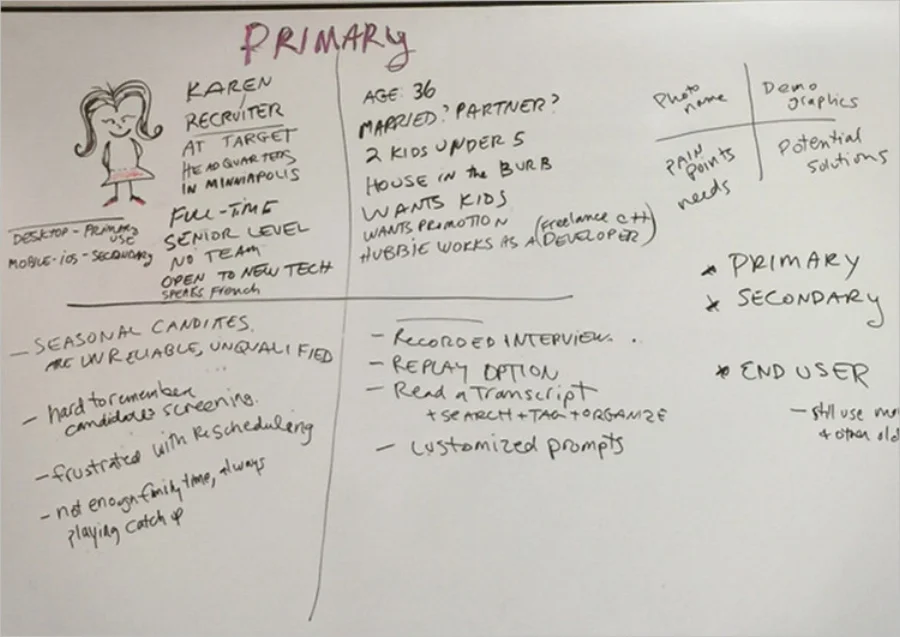 PRIMARY
KAREN
RECRUITER
AT TARGET
HEADQUARTERS
IN MINNIAPOLIS
FULL-TIME
SENIOR LEVEL
NO TEAM
OPEN TO NEW TECH
SPEAKS French
DESKTOP - PRIMARY
USE
MOBILE - iOS - SECONDARY
AGE: 36
MARRIED? PARTNER?
2 KIDS UNDER 5
HOUSE IN the BURB
WANTS KIDS
WANTS PROMOTION
HUBBIE WORKS AS A (Freelance C++
DEVELOPER)
Photo
name
Demo
graphics
PAIN
POINTS
needs
Potential
Solutions
* PRIMARY
* SECONDARY
* END USER
- still use
+ other old
- SEASONAL CANDITES.
ARE UNRELIABLE, UNQUALIFIED
- hard to remember
candidates screening.
- frustrated with Rescheduling
- not enough family time, always
playing catch up
- RECORDED INTERVIEW.
- REPLAY OPTION
- Read a Transcript
+ SEARCH + TAG + ORGANIZE
- Customized prompts